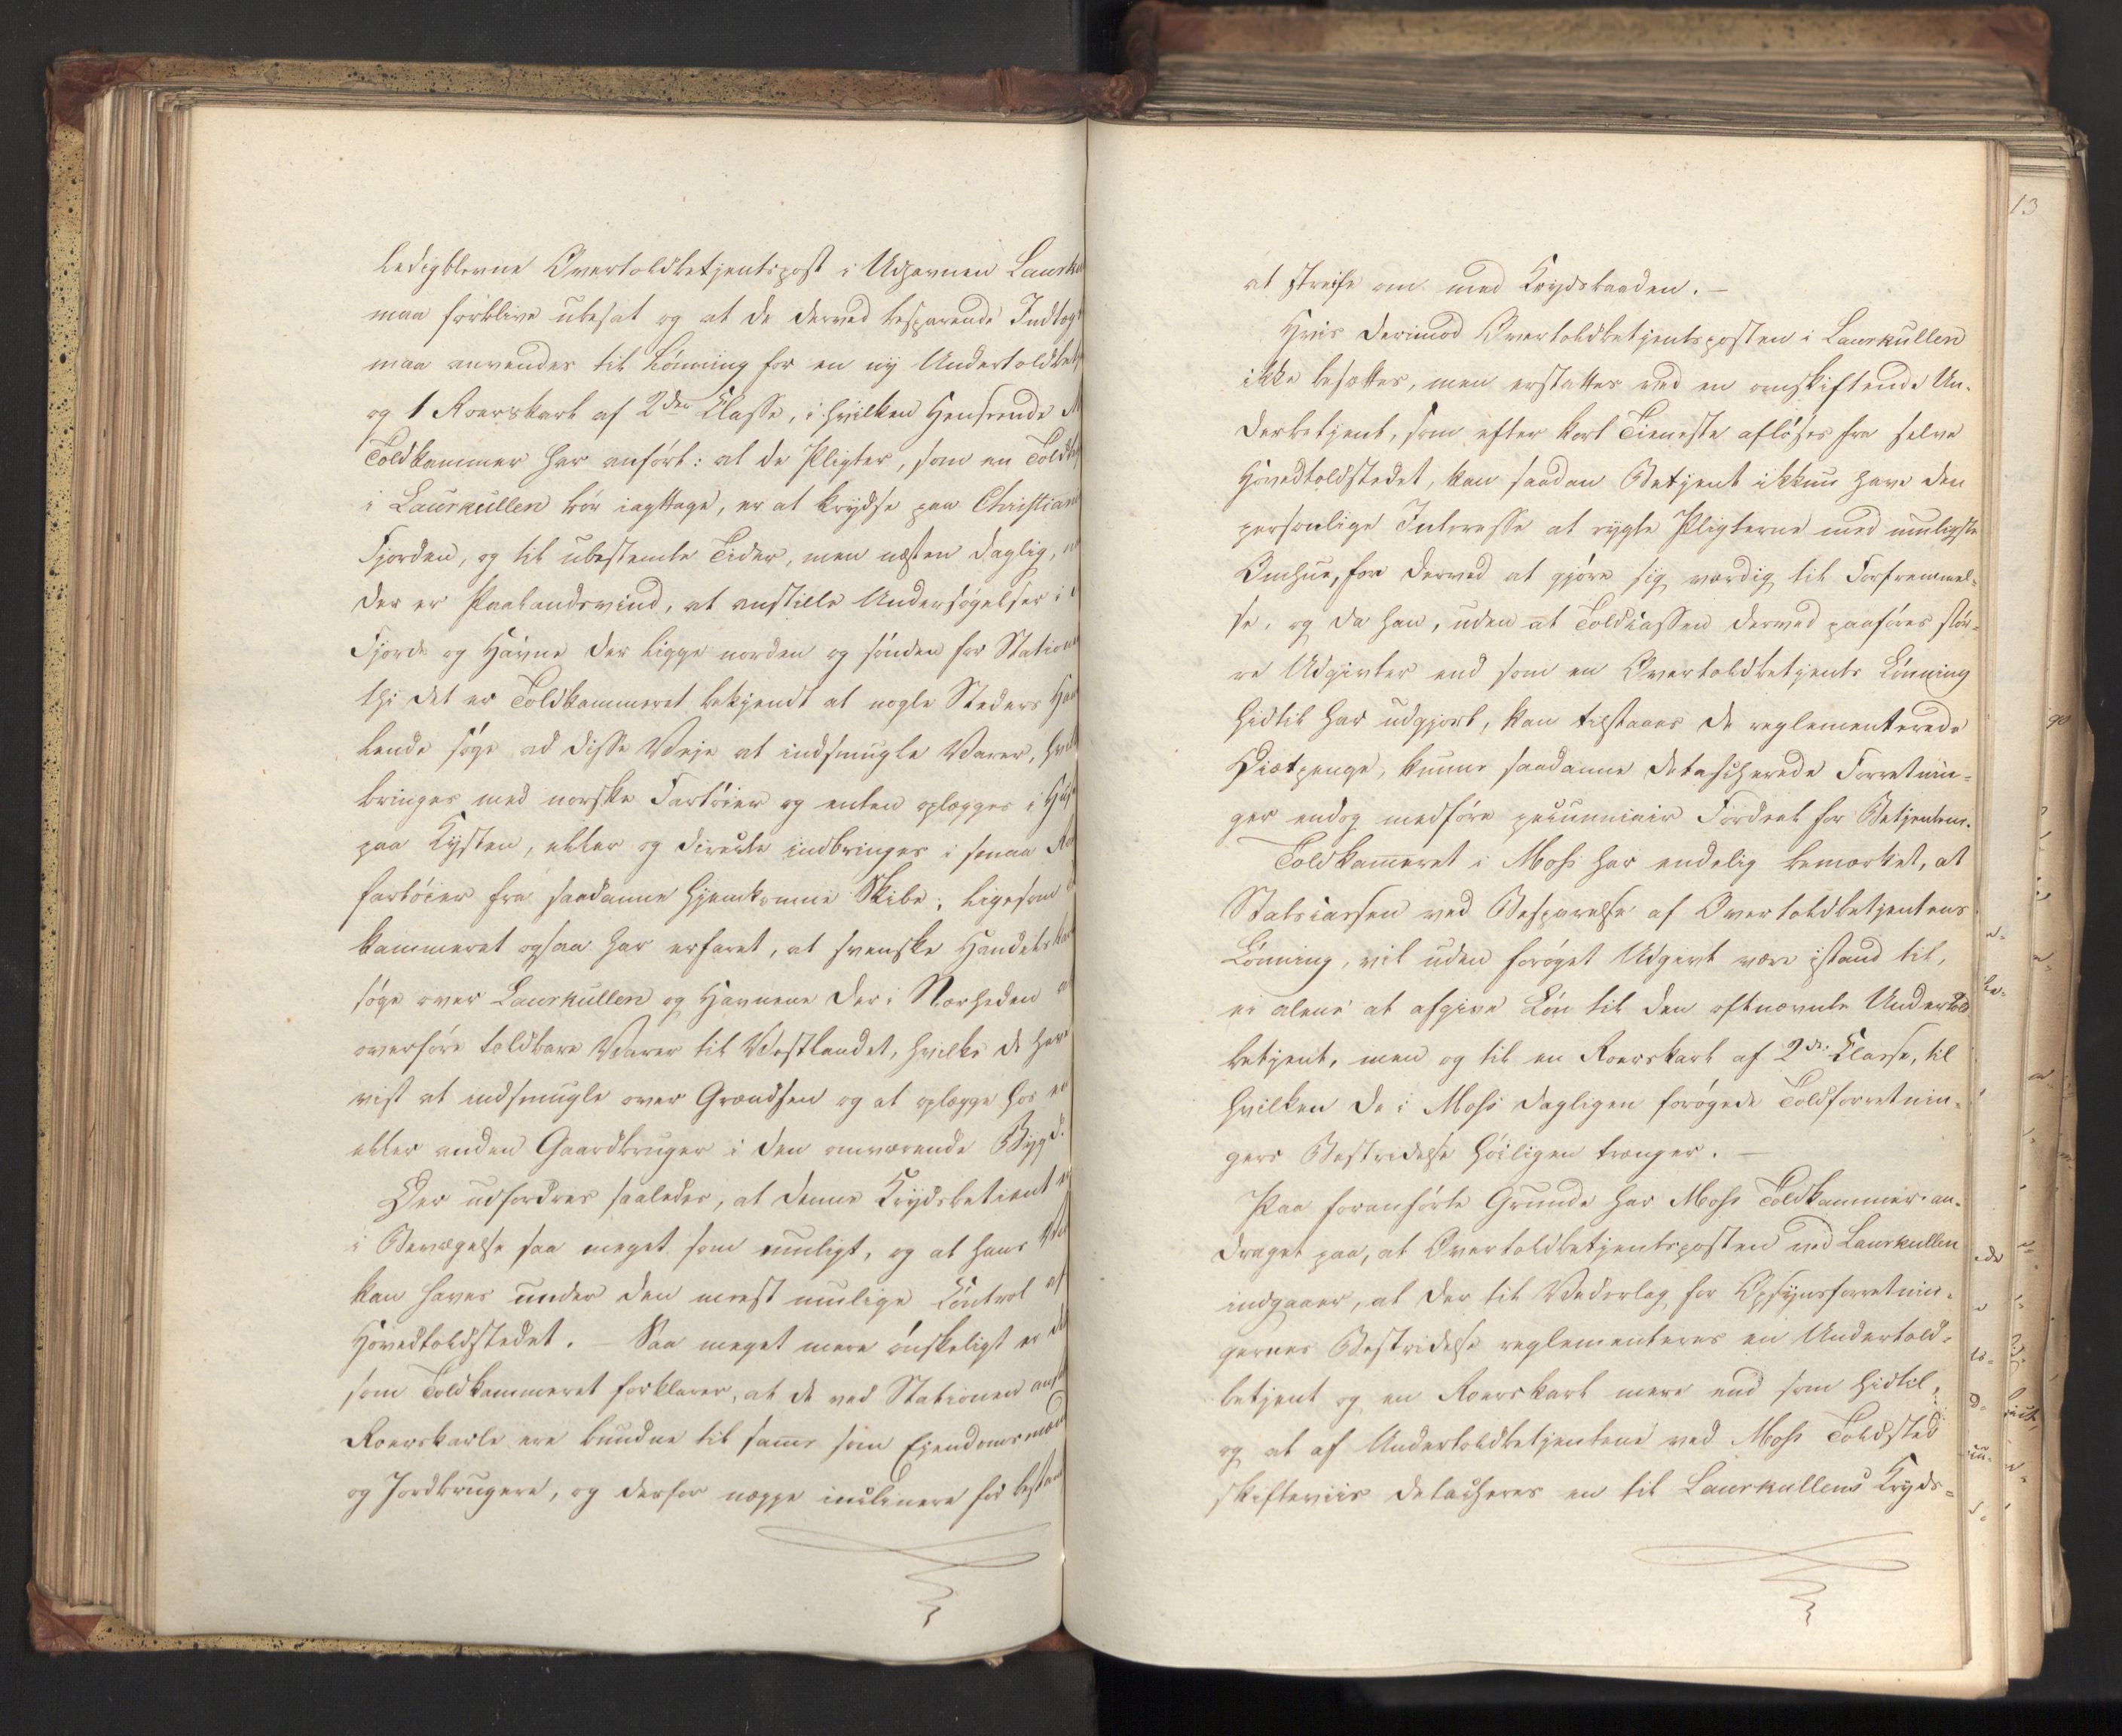 ledigblevne Overtoldbetjentpost i Udhavnen Laurku
maa forblive ubesat og at de derved besparende Indtægt
maa anvendes til Lønning for en ny Undertoldbetj
og 1 Roerskarl af 2den Classe, i hvilken Henseende M
Toldkammer har anført: at de Pligter, som en Toldbetj
i Laurkullen bør iagttage, er at krydse paa Christiania
Fjorden, og til ubestemte Tider, men næsten daglig, n
der er Paalandsvind, at anstille Undersøgelser i
Fjorde og Havne der ligge norden og sønden for Station
thi det er Toldkammeret bekjendt at nogle Steders Han
lende søge ad disse Veje at indsmugle Varer, hvil
bringes med norske Fartøier og enten oplægges i Huse
paa Kysten, eller og directe indbringes i smaa Ro
fartøier fra saadanne hjemkomne Skibe; ligesom
kammeret ogsaa har erfaret, at svenske Handelskar
søge over Laurkullen og Havnene der i Nærheden a
overføre toldbare Varer til Vestlandet, hvilke de have
vist at indsmugle over Grændsen og at oplægge hos en
eller anden Gaardbruger i den omværende Bygd.
Der udfordres saaledes, at denne Krydsbetient er
i Bevægelse saa meget som muligt, og at hans
kan haves under den meest mulige Control af
Hovedtoldstedet. – Saa meget mere ønskeligt er det
som Toldkammeret forklarer, at de ved Stationen ansat
Roerskarle ere bundne til samme som Ejendomsmænd
og Jordbrugere, og derfor neppe inclinere for bestand
13
at streife om med Krydsbaaden. –
Hvis derimod Overtoldbetjentsposten i Laurkullen
ikke besættes, men erstattes ved en omskiftende Un-
derbetjent, som efter kort Tieneste afløses fra selve
Hovedtoldstedet, kan saadan Betjent ikkun have den
personlige Interesse at rygte Pligterne med muligste
Omhue, for derved at gjøre sig værdig til Forfremmel-
se, og da han, uden at Toldcassen derved paaføres stør-
re Udgivter end som en Overtoldbetjents Lønning
hidtil har udgjort, kan tilstaaes de reglementerede
Diætpenge, kunne saadanne detascherede Forretnin-
ger endog medføre pecunniair Fordeel for Betjenten.
Toldkammeret i Moss har endelig bemærket, at
Statscassen ved Besparelse af Overtoldbetjentens
Lønning, vil uden forøget Udgivt være istand til,
ei alene at afgive Løn til den oftnævnte Undertold
betjent, men og til en Roerskarl af 2de Classe, til
hvilken de i Moss dagligen forøgede Toldforretnin-
gers Bestridelse høiligen trænger. –
Paa foranførte Grunde har Moss Toldkammer an-
draget paa, at Overtoldbetjentsposten ved Laurkullen
indgaaer, at der til Vederlag for Opsynsforretnin-
gernes Bestridelse reglementeres en Undertold-
betjent og en Roerskarl mere end som hidtil,
og at af Undertoldbetjentene ved Moss Toldsted
skifteviis detacheres en til Laurkullens Kryds-